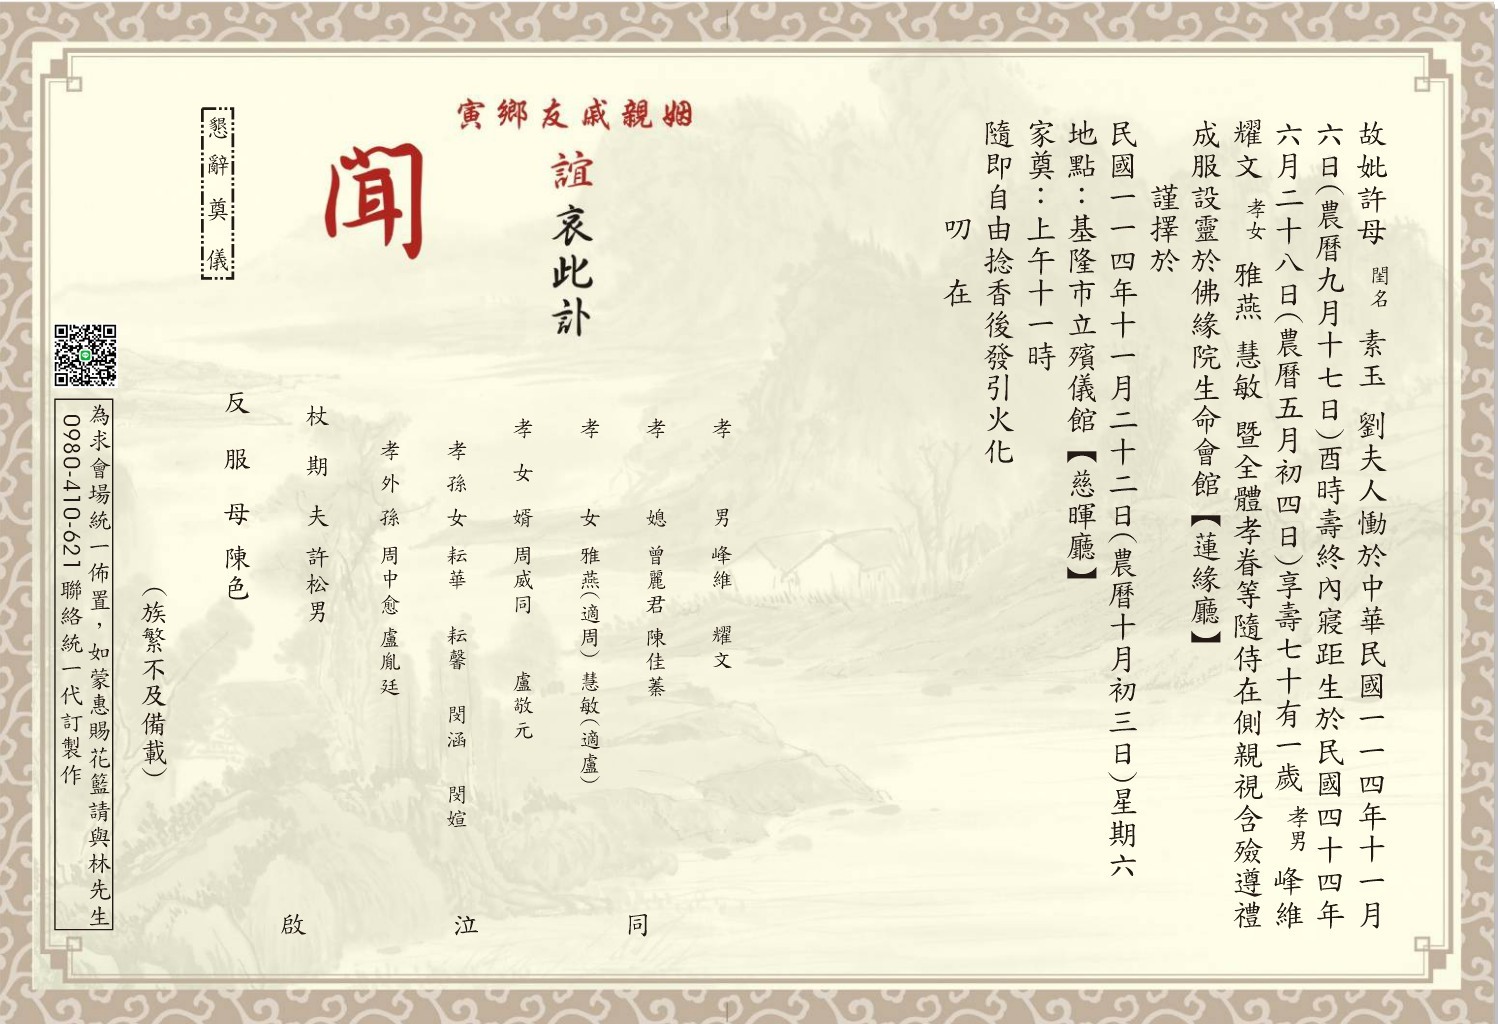 故妣許母 閨名 素玉 劉夫人慟於中華民國一一四年十一月
六日(農曆九月十七日)酉時壽終內寢距生於民國四十四年
六月二十八日(農曆五月初四日)享壽七十有一歲 孝男 峰維
耀文 孝女 雅燕 慧敏 暨全體孝眷等隨侍在側親視含殮遵禮
成服設靈於佛緣院生命會館【蓮緣廳】
謹擇於
民國一一四年十一月二十二日(農曆十月初三日)星期六
地點：基隆市立殯儀館【慈暉廳】
家奠：上午十一時
隨即自由捻香後發引火化
叨 在
姻親戚友鄉寅
誼哀此訃
聞
孝男 峰維 耀文
孝媳 曾麗君 陳佳蓁
孝女 雅燕(適周) 慧敏(適盧)
孝女婿 周威同 盧敬元
孝孫女 耘華 耘馨 閔涵 閔媗
孝外孫 周中愈 盧胤廷
杖期夫 許松男
反服母 陳色
同 泣 啟
(族繁不及備載)
懇辭奠儀
為求會場統一佈置，如蒙惠賜花籃請與林先生
0980-410-621 聯絡統一代訂製作